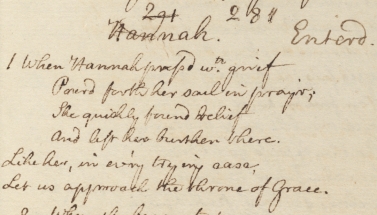 291 281
Hannah. Enterd.
1 When Hannah press'd wth. grief
Pour'd forth her soul in pray'r;
She quickly found relief
And left her burthen there.
Like her, in ev'ry trying case,
Let us approach the throne of Grace.